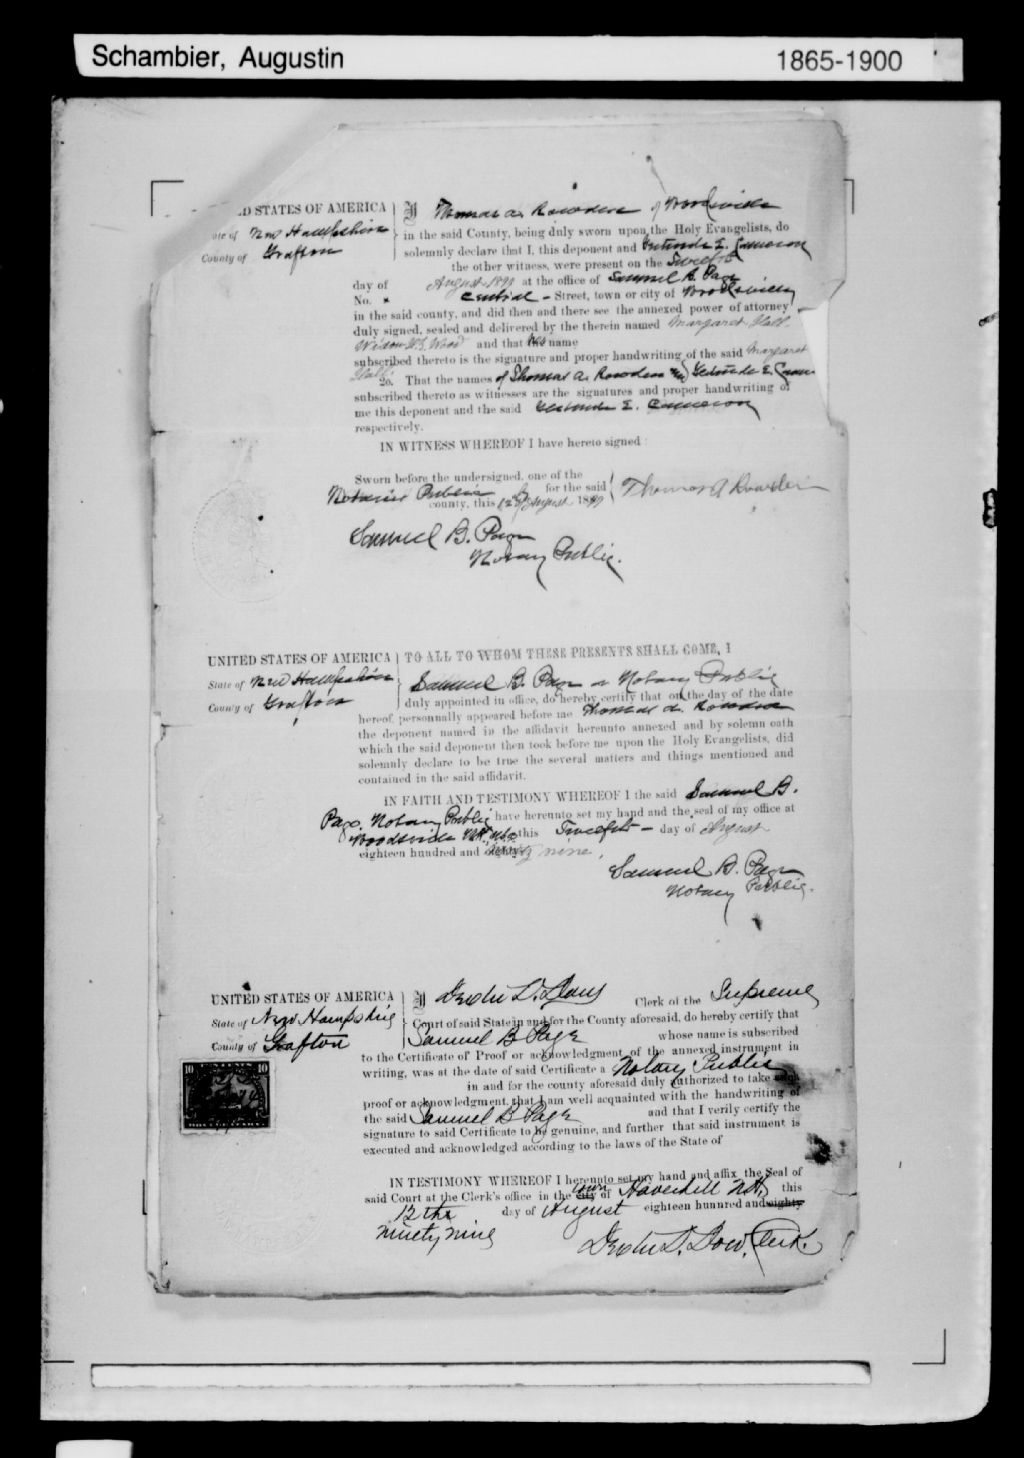 Schambier, Augustin 1865-1900
D STATES OF AMERICA
of New Hampshire
County of Grafton
I Thomas A. Rowden of Woodsville
in the said County, being duly sworn upon the Holy Evangelists, do
solemnly declare that I, this deponent and Gertrude E. Cameron
the other witness, were present on the Twelfth
day of August 1899 at the office of Samuel B. Page
No. Central - Street, town or city of Woodsville
in the said county, and did then and there see the annexed power of attorney
duly signed, sealed and delivered by the therein named Margaret Hall
Widow and that the name
subscribed thereto is the signature and proper handwriting of the said Margaret
Hall
2o. That the names of Thomas A. Rowden and Gertrude E. Cameron
subscribed thereto as witnesses are the signatures and proper handwriting of
me this deponent and the said Gertrude E. Cameron
respectively.
IN WITNESS WHEREOF I have hereto signed:
Sworn before the undersigned, one of the
Notaries Public for the said
county, this 12 August 1899
Thomas A Rowden
Samuel B. Page
Notary Public.
UNITED STATES OF AMERICA
State of New Hampshire
County of Grafton
TO ALL TO WHOM THESE PRESENTS SHALL COME, I
Samuel B. Page a Notary Public
duly appointed in office, do hereby certify that on the day of the date
hereof, personnally appeared before me Thomas A. Rowden
the deponent named in the affidavit hereunto annexed and by solemn oath
which the said deponent then took before me upon the Holy Evangelists, did
solemnly declare to be true the several matters and things mentioned and
contained in the said affidavit.
IN FAITH AND TESTIMONY WHEREOF I the said Samuel B.
Page, Notary Public have hereunto set my hand and the seal of my office at
Woodsville N.H. this Twelfth - day of August
eighteen hundred and ninety nine,
Samuel B. Page
Notary Public.
UNITED STATES OF AMERICA
State of New Hampshire
County of Grafton
I Dexter D. Dow Clerk of the Supreme
Court of said State in and for the County aforesaid, do hereby certify that
Samuel B Page whose name is subscribed
to the Certificate of Proof or acknowledgment of the annexed instrument in
writing, was at the date of said Certificate a Notary Public
in and for the county aforesaid duly authorized to take such
proof or acknowledgment, that I am well acquainted with the handwriting of
the said Samuel B Page and that I verily certify the
signature to said Certificate to be genuine, and further that said instrument is
executed and acknowledged according to the laws of the State of
10 10
IN TESTIMONY WHEREOF I hereunto set my hand and affix the Seal of
said Court at the Clerk's office in the city town of Haverhill N.H, this
12 the day of August eighteen hunnred and eighty
ninety nine
Dexter D. Dow, Clerk.